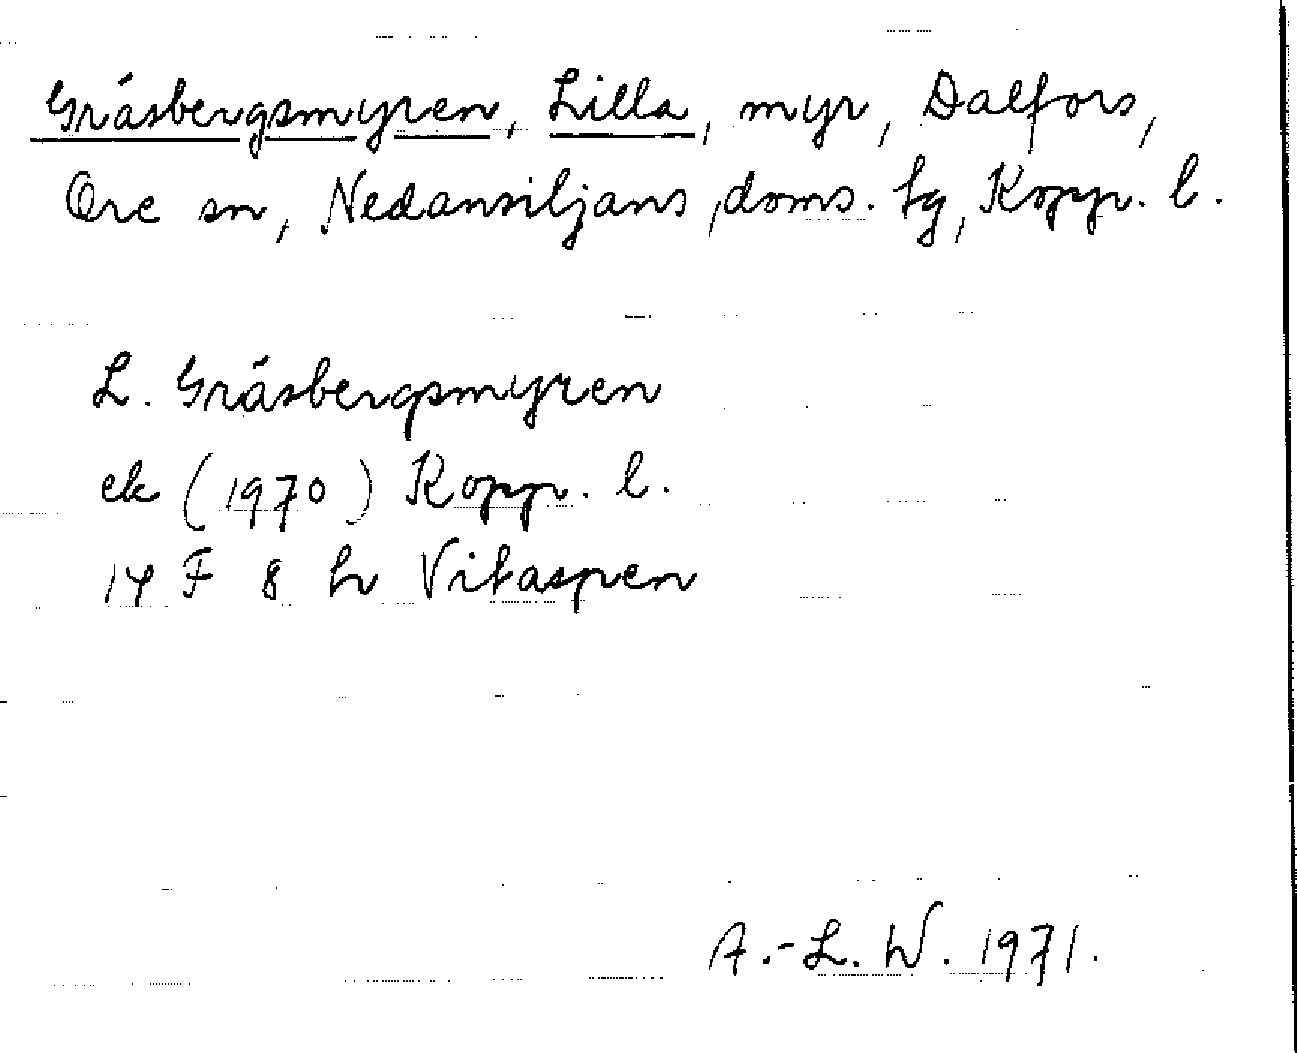 Gråsbergsmyren, Lilla, myr, Dalfors,
Ore sn, Nedansiljans doms. tg, Kopp. l.
L. Gråsbergsmyren
ek (1970) Kopp. l.
14 F 8 h Vitaspen
A.-L. W. 1971.